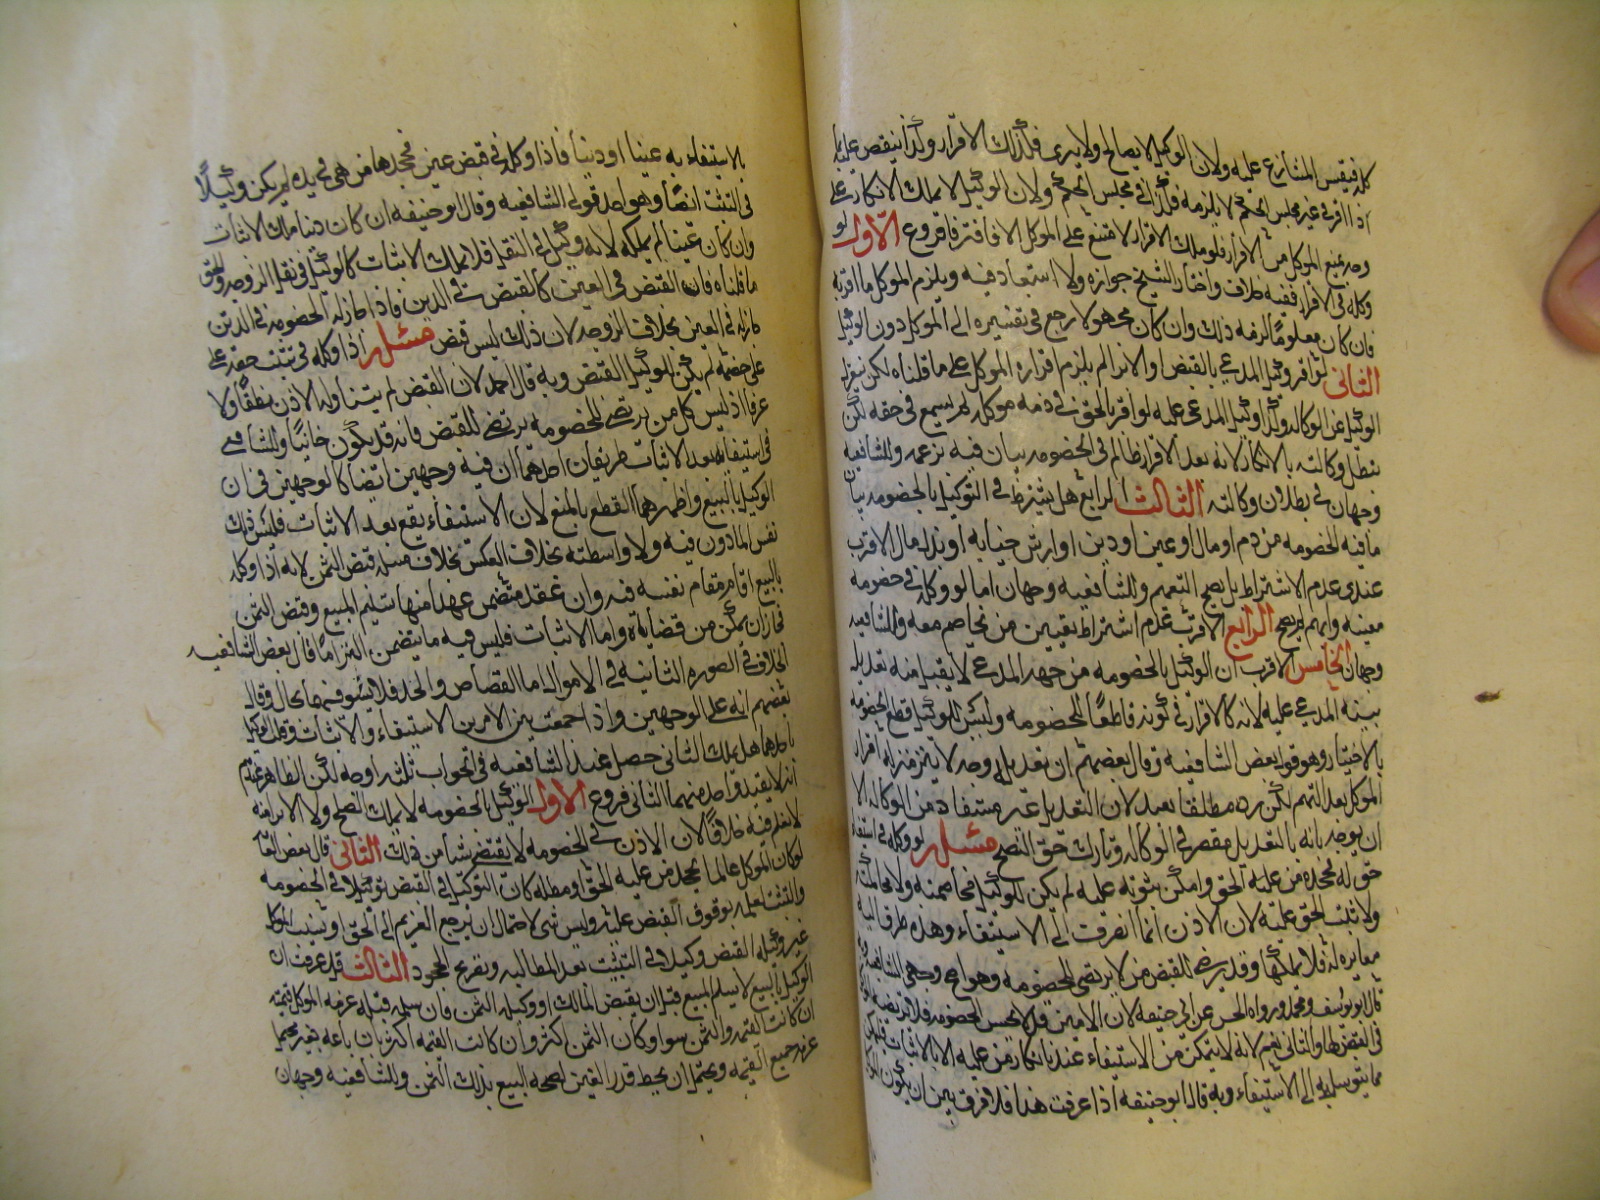 كله فيقيس المتنازع عليه ولان الوكيل لا يصالح ولا يبرى فكذلك الاقرار وكذا ينقض علينا بما
اذا اقر في غير مجلس الحكم لا يلزمه فكذا في مجلس الحكم ولان الوكيل لا يملك الانكار على
وجه يمنع الموكل من الاقرار فلو ملك الاقرار لامتنع على الموكل الانكار فافترقا فروع الاول لو
وكله في الاقرار ففيه خلاف واختار الشيخ جوازه ولا استبعاد فيه ويلزم الموكل ما اقر به
فان كان معلوما لزمه ذلك وان كان مجهولا رجع في تفسيره الى الموكل دون الوكيل
الثاني لو اقر وكيل المدعي بالقبض او الابراء لم يلزم اقراره الموكل على ما قلناه لكن ينعزل
الوكيل عن الوكالة وكذا وكيل المدعى عليه لو اقر بالحق في ذمة موكله لم يسمع في حقه لكن
تبطل وكالته بالانكار لانه بعد الاقرار ظالم في الخصومة بيان فيه بزعمه وللشافعية
وجهان في بطلان وكالته الثالث الرابع هل يشترط في التوكيل بالخصومة بيان
ما فيه الخصومة من دم او مال او عين او دين او ارش جناية او بدل مال الاقرب
عندي عدم الاشتراط بل يصح التعميم وللشافعية وجهان اما لو وكله في خصومة
معينة وابهم لم يصح الرابع الاقرب عدم اشتراط تعيين من يخاصم معه وللشافعية
وجهان الخامس الاقرب ان الوكيل بالخصومة من جهة المدعي لا يقبل منه تعديل
بينة المدعي عليه لانه كالاقرار في كونه قاطعا للخصومة وليس للوكيل قطع الخصومة
بالاختيار وهو قول بعض الشافعية وقال بعضهم ان تعديله وحده لا ينزل منزلة اقرار
الموكل بعدالتهم لكن رده مطلقا بعيد لان التعديل غير مستفاد من الوكالة الا
ان يوجه بانه بالتعديل مقصر في الوكالة وتارك حق النصح مسئلة لو وكله في استيفاء
حق له فجحده من عليه الحق وامكن ثبوته عليه لم يكن للوكيل مخاصمته ولا محاكمته
ولا تثبت الحق عليه لان الاذن انما انصرفت الى الاستيفاء وهذه طرق اليه
مغايرة له فلا يملكها وقد يرضى للقبض من لا يرتضى للخصومة وهو احد وجهي الشافعية وبه
قال ابو يوسف ومحمد ورواه الحسن عن ابي حنيفة لان الامين قد لا يحسن الخصومة فلا يرتضيه
في القبض لها والثاني نعم لانه لا يتمكن من الاستيفاء عند انكار من عليه الا بالاثبات فليمكن
مما يتوسل به الى الاستيفاء وبه قال ابو حنيفة اذا عرفت هذا فلا فرق بين ان يكون
بالاستيفاء به عينا او دينا فاذا وكله في قبض عين فجحدها من هي في يده لم يكن وكيلا
في التثبت ايضا وهو احد قولي الشافعية وقال ابو حنيفة ان كان دينا ملك الاثبات
وان كان عينا لم يملكه لانه وكيل في النقل فلا يملك الاثبات كالوكيل في نقل الزوجة والحق
ما قلناه فان القبض في العين كالقبض في الدين فاذا جاز له الخصومة في الدين
جاز له في العين بخلاف الزوجة لان ذلك ليس قبض مسئلة اذا وكله في تثبت حقه على
على خصمه لم يكن للوكيل القبض وبه قال احمد لان القبض لم يتناوله الاذن نطقا ولا
عرفا اذ ليس كل من يرتضى للخصومة يرتضى للقبض فانه قد يكون خائنا وللشافعي
في استيفائه بعد الاثبات طريقان احدهما ان فيه وجهين ايضا كالوجهين في ان
الوكيل بالبيع واظهرهما القطع بالمنع لان الاستيفاء يقع بعد الاثبات فليس ذلك
نفس المأذون فيه ولا واسطته بخلاف العكس بخلاف مسئلة قبض الثمن لانه اذا وكله
بالبيع اقام مقام نفسه فيه وان عقد متضمن عهدا منها تسليم المبيع وقبض الثمن
فجاز ان يمكن من قضاياه واما الاثبات فليس فيه ما يتضمن التزاما قال بعض الشافعية
الخلاف في الصورة الثانية في الاموال اما القصاص والحد فلا يستوفيهما بحال وقال
بعضهم انه على الوجهين واذا جمعت بين الامرين الاستيفاء والاثبات وقلت الوكيل
باحدهما هل يملك الثاني حصل عند الشافعية في الجواب ثلثة اوجه لكن الظاهر عندهم
انه لا يفيد واحد منهما الثاني فروع الاول الوكيل بالخصومة لا يملك الصلح ولا الابراء منه
لا نعلم فيه خلافا لان الاذن في الخصومة لا يقتضي شيأ من ذلك الثاني قال بعض العامة
لو كان الموكل عالما بجحد من عليه الحق او مطله كان التوكيل في القبض توكيلا في الخصومة
والتثبت لعلمه بوقوف القبض عليه وليس شى لاحتمال ان يرجع الغريم الى الحق او يثبت الموكل
غير وكيله القبض وكيلا في التثبيت بعد المطالبة وتصريح الجحود الثالث قد عرفت ان
الوكيل بالبيع لا يسلم المبيع قبل ان يقبض المالك او وكيله الثمن فان سلمه قبله غرمه الموكل قيمته
ان كانت القيمة والثمن سواء وكان الثمن اكثر وان كانت القيمة اكثر بان باعه بغبن محتمل
غرمه جميع القيمة ويحتمل ان يحط قدر الغبن لصحة البيع بذلك الثمن وللشافعية وجهان